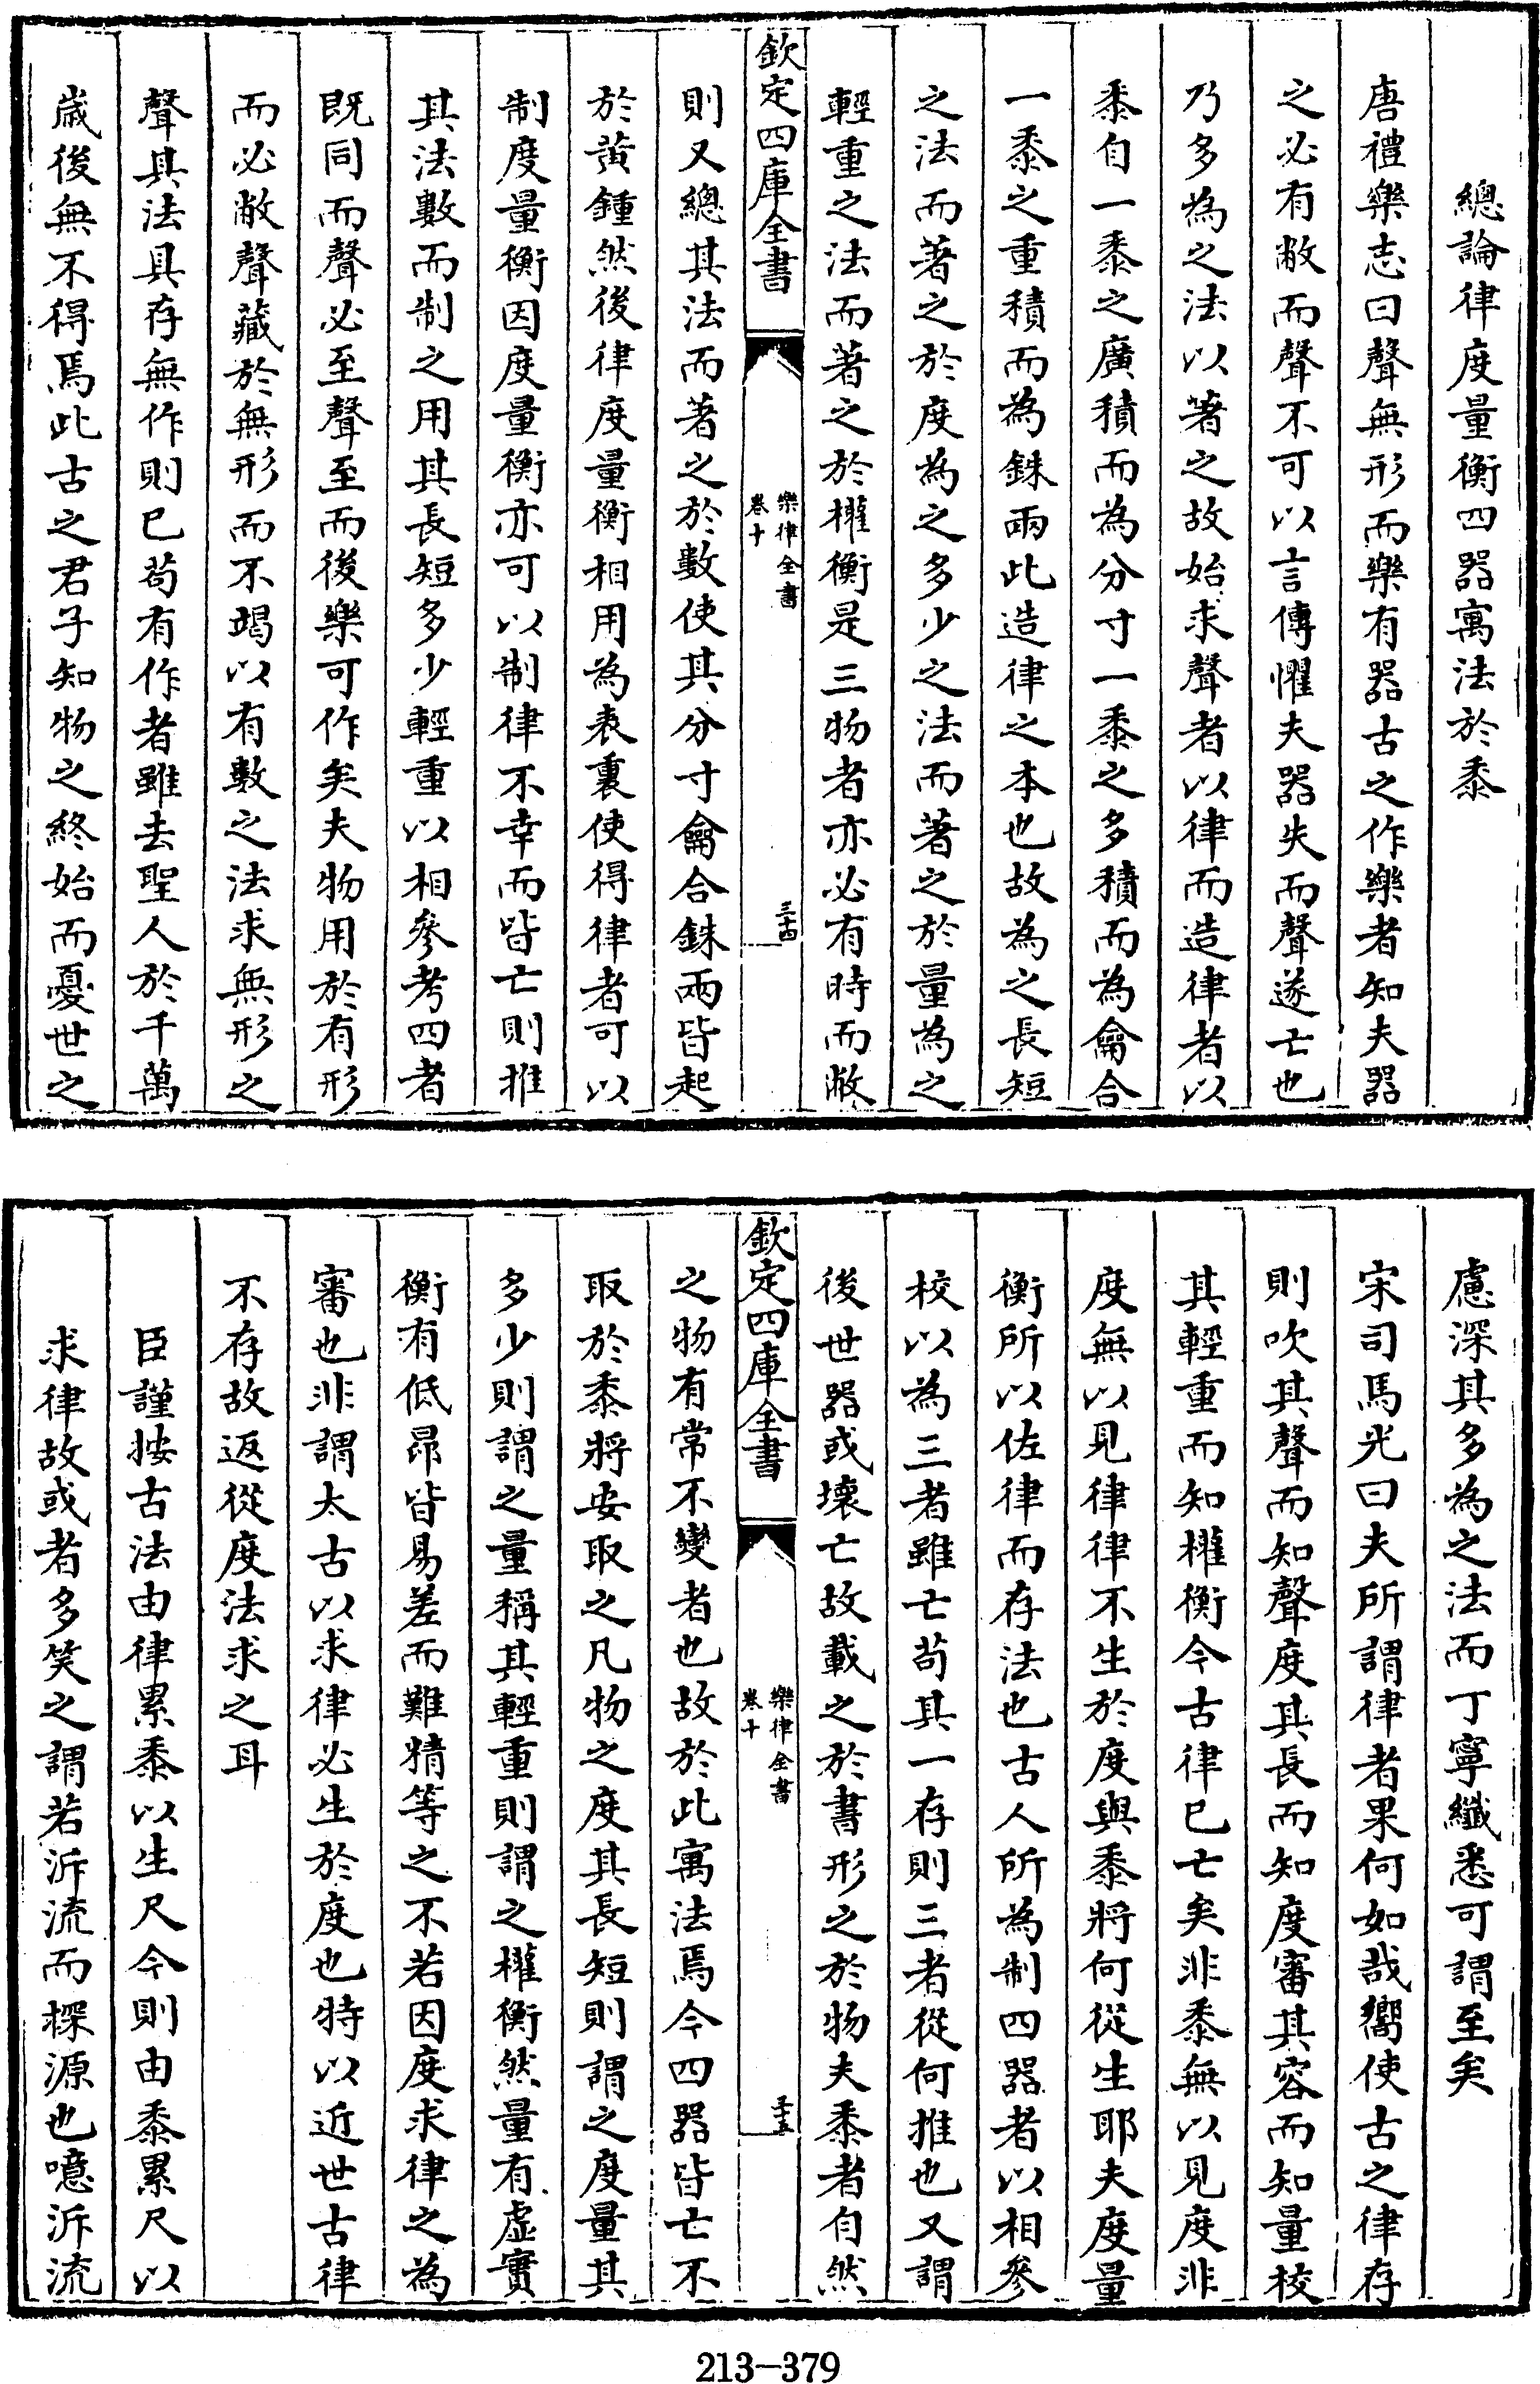 總論律度量衡四器寓法於黍
唐禮樂志曰聲無形而樂有器古之作樂者知夫器
之必有敝而聲不可以言傳懼夫器失而聲遂亡也
乃多為之法以著之故始求聲者以律而造律者以
黍自一黍之廣積而為分寸一黍之多積而為龠合
一黍之重積而為銖兩此造律之本也故為之長短
之法而著之於度為之多少之法而著之於量為之
輕重之法而著之於權衡是三物者亦必有時而敝
欽定四庫全書
樂律全書
卷十
三十四
則又總其法而著之於數使其分寸龠合銖兩皆起
於黃鍾然後律度量衡相用為表裏使得律者可以
制度量衡因度量衡亦可以制律不幸而皆亡則推
其法數而制之用其長短多少輕重以相參考四者
既同而聲必至聲至而後樂可作矣夫物用於有形
而必敝聲藏於無形而不竭以有數之法求無形之
聲其法具存無作則已苟有作者雖去聖人於千萬
歲後無不得焉此古之君子知物之終始而憂世之
慮深其多為之法而丁寧纖悉可謂至矣
宋司馬光曰夫所謂律者果何如哉嚮使古之律存
則吹其聲而知聲度其長而知度審其容而知量校
其輕重而知權衡今古律已亡矣非黍無以見度非
度無以見律律不生於度與黍將何從生耶夫度量
衡所以佐律而存法也古人所為制四器者以相參
校以為三者雖亡苟其一存則三者從何推也又謂
後世器或壞亡故載之於書形之於物夫黍者自然
欽定四庫全書
樂律全書
卷十
三十五
之物有常不變者也故於此寓法焉今四器皆亡不
取於黍將安取之凡物之度其長短則謂之度量其
多少則謂之量稱其輕重則謂之權衡然量有虛實
衡有低昂皆易差而難精等之不若因度求律之為
審也非謂太古以求律必生於度也特以近世古律
不存故返從度法求之耳
臣謹按古法由律累黍以生尺今則由黍累尺以
求律故或者多笑之謂若泝流而探源也噫泝流
213-379